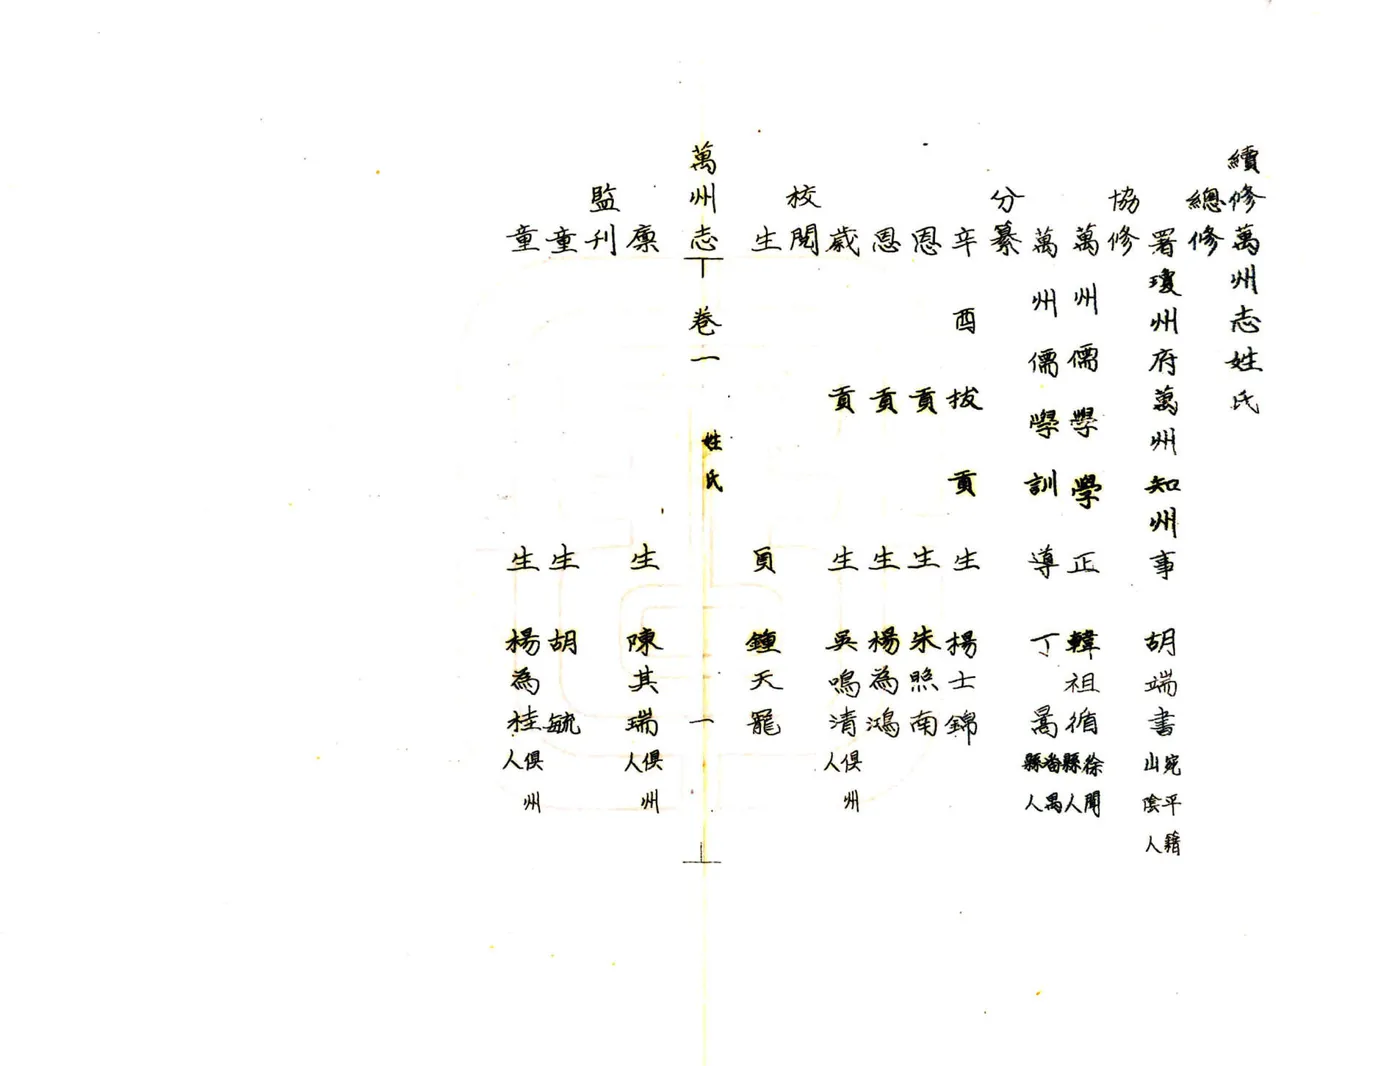 續修萬州志姓氏
總修
署瓊州府萬州知州事 胡端書 宛平籍山陰人
協修
萬州儒學學正 韓祖循 徐聞縣人
萬州儒學訓導 丁暠 番禺縣人
分纂
辛酉拔貢生 楊士錦
恩貢生 朱照南
恩貢生 楊為鴻
歲貢生 吳鳴清 俱州人
校閱
生員 鍾天寵
萬州志 卷一 姓氏 一
廩生 陳其瑞 俱州人
監刊
童生 胡毓
童生 楊為桂 俱州人